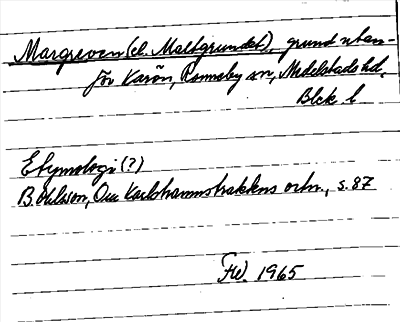 Margreven (el. Maltgrundet), grund utan-
för Karön, Ronneby sn, Medelstads hd,
Blek. l
Etymologi (?)
B. Ohlsson, Om Karlshamnstraktens ortn., s. 87
FW. 1965